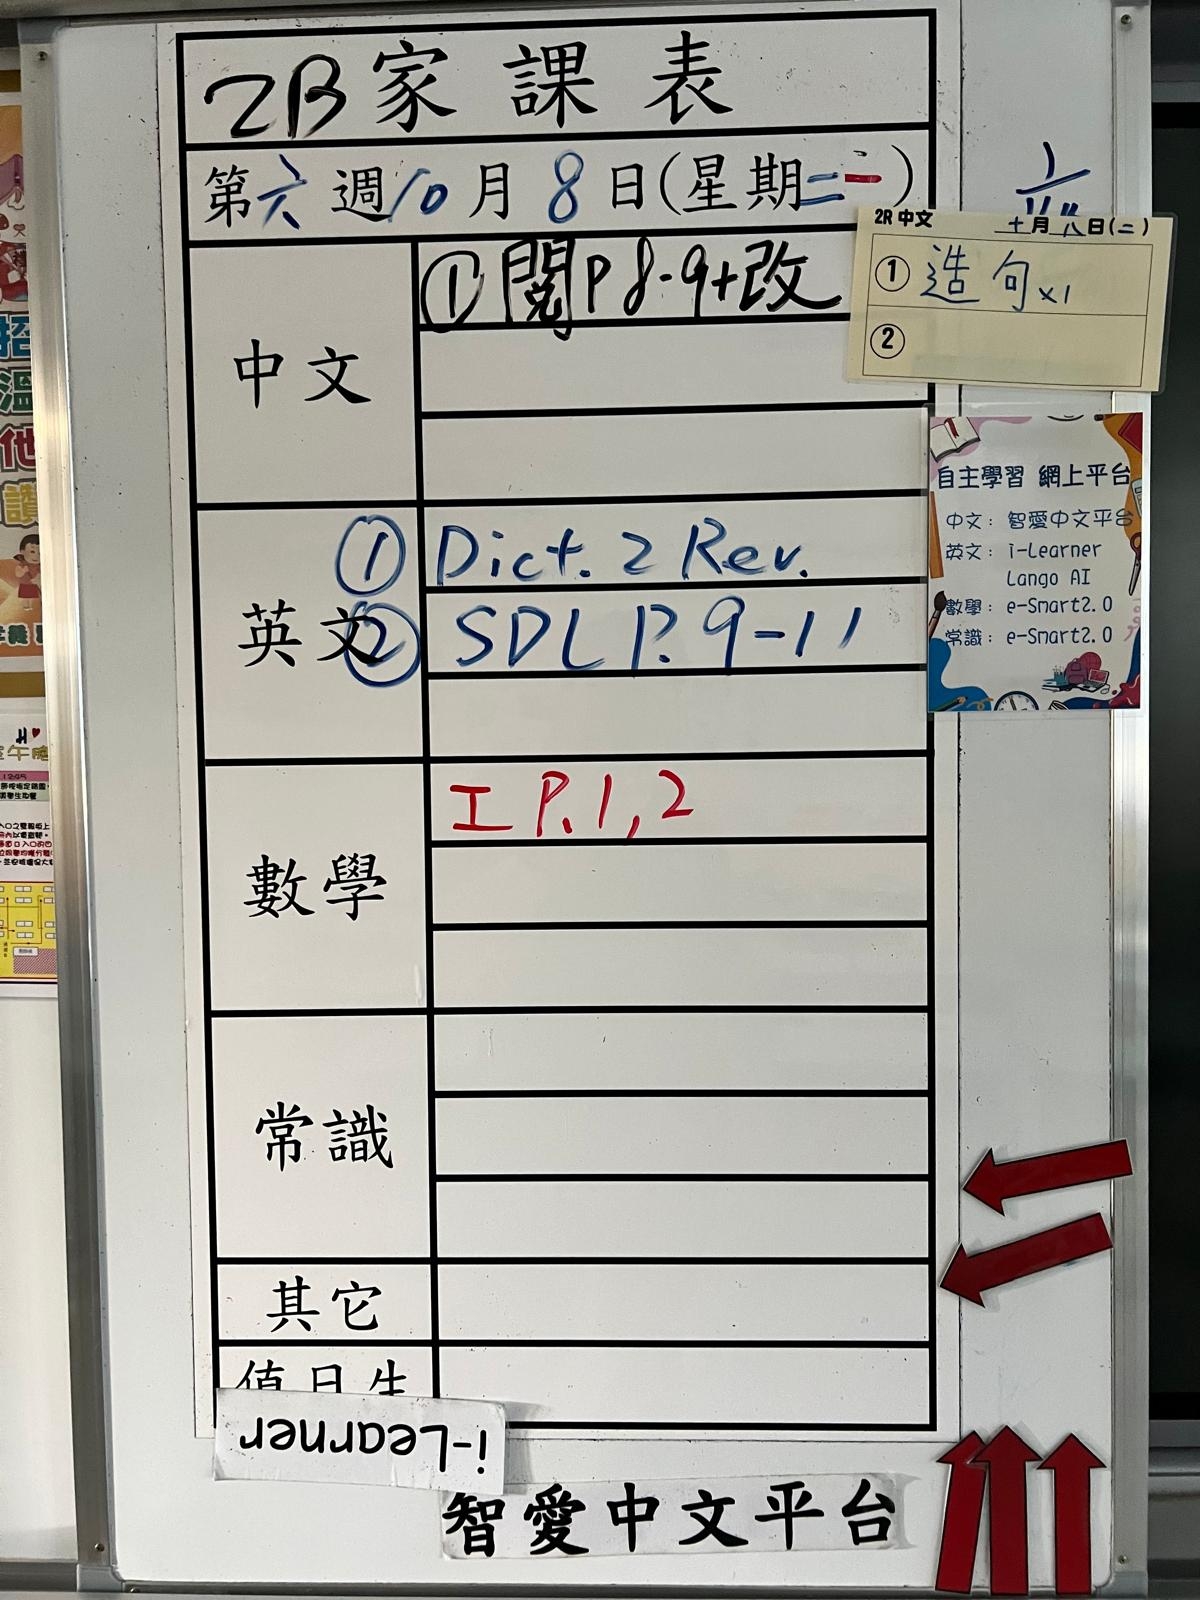 2B家課表
第六週10月8日(星期二)
中文
①閱P8-9+改
英文
①Dict. 2 Rev.
②SDL P.9-11
數學
工 P.1,2
常識
其它
值日生
i-Learner
智愛中文平台
六
2R 中文 十月八日(二)
①造句x1
②
自主學習 網上平台
中文: 智愛中文平台
英文: i-Learner
Lango AI
數學: e-Smart2.0
常識: e-Smart2.0
招
溫
他
讚
1245